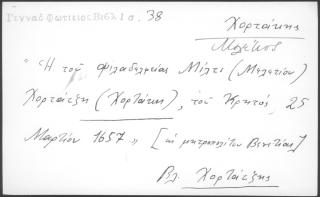 Γενναδ Φωτιειος Βιβλ 1 σ. 38
Χορτάκης
Μελέτιος
"Ἡ τοῦ Φιλαδελφείας Μελετι (Μελετίου)
Χορτάτζη (Χορτάκη), τοῦ Κρητός, 25
Μαρτίου 1657" [ἐκ μητροπολίτου Βενετίας]
Βλ. Χορτάτζης